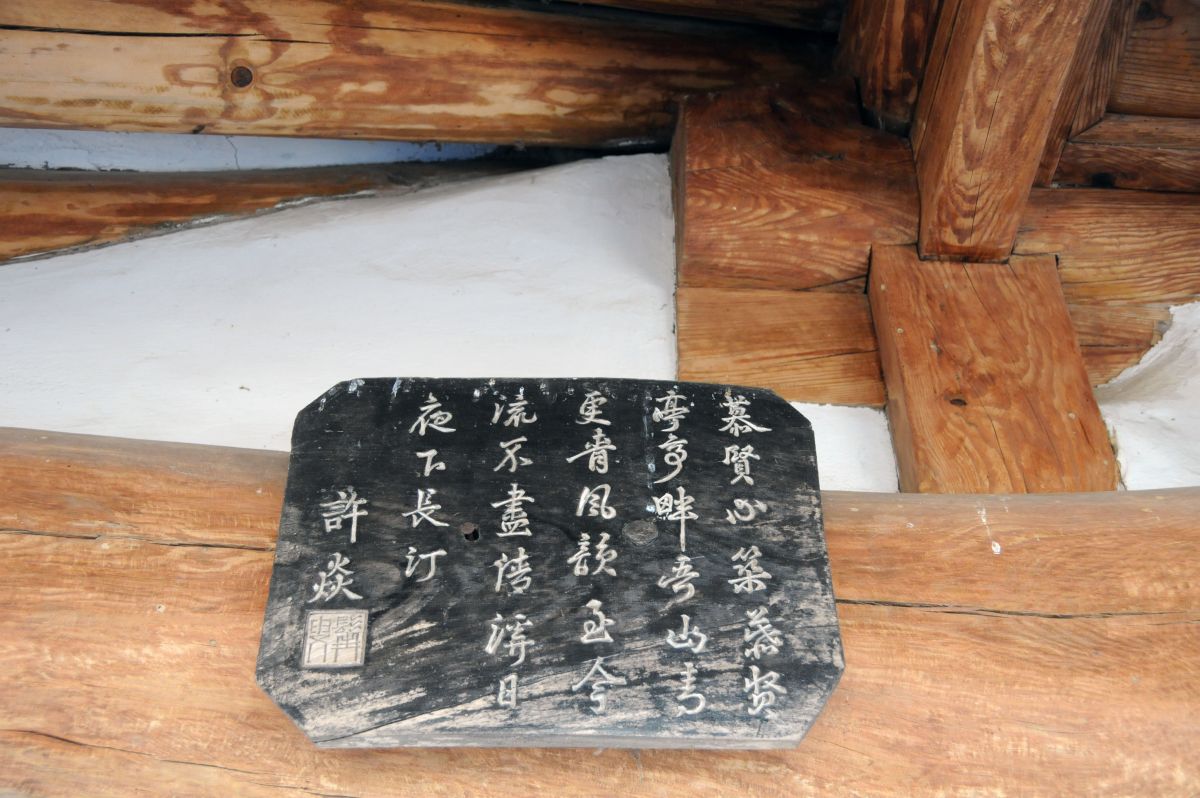 慕賢心築慕賢
亭亭畔吾山青
更青風韻至今
流不盡清溪日
夜下長汀
許焱